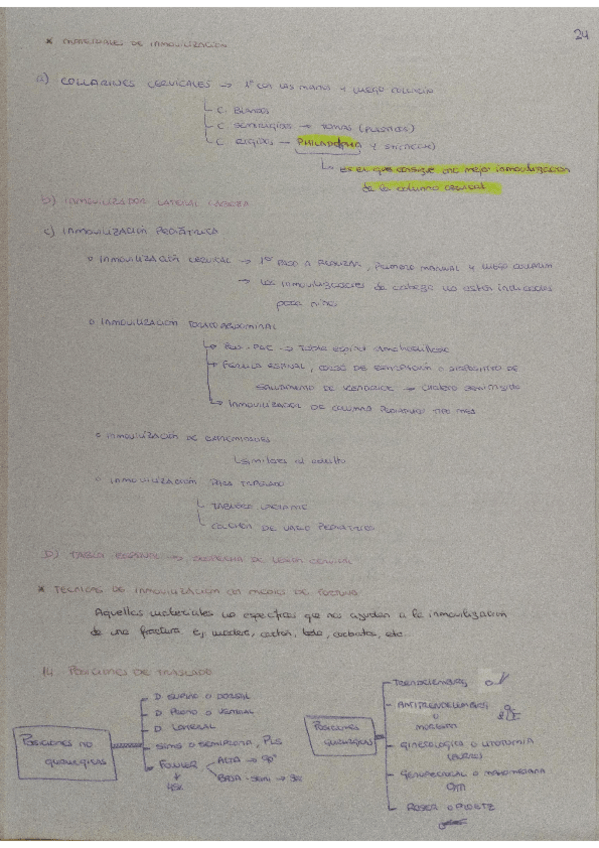 24
* MATERIALES DE INMOVILIZACIÓN
a) COLLARINES CERVICALES → 1º CON LAS MANOS Y LUEGO COLLARÍN
C. BLANDOS
C. SEMIRÍGIDOS → TOMAS (PLÁSTICOS)
C. RÍGIDOS → PHILADELPHIA Y STIFNECK
Es el que consigue una mejor inmovilización
de la columna cervical
b) INMOVILIZADOR LATERAL CABEZA
c) INMOVILIZACIÓN PEDIÁTRICA
INMOVILIZACIÓN CERVICAL → 1er PASO A REALIZAR, PRIMERO MANUAL Y LUEGO COLLARÍN
→ Los inmovilizadores de cabeza no están indicados
para niños
INMOVILIZACIÓN TORACOABDOMINAL
FÉRULA ESPINAL, DE
SALVAMENTO DE KENDRICK →
INMOVILIZADOR DE COLUMNA PEDIÁTRICO TIPO
INMOVILIZACIÓN DE EXTREMIDADES
Similares al adulto
INMOVILIZACIÓN PARA TRASLADO
TABLERO LACTANTE
COLCHÓN DE VACÍO PEDIÁTRICO
D) TABLA ESPINAL → SOSPECHA DE LESIÓN CERVICAL
* TÉCNICAS DE INMOVILIZACIÓN CON MEDIOS DE FORTUNA
Aquellos materiales no específicos que nos ayudan a la inmovilización
de una fractura ej, madera, cartón, tela, etc.
14. POSICIONES DE TRASLADO
Posiciones no
quirúrgicas
D. SUPINO O DORSAL
D. PRONO O VENTRAL
D. LATERAL
SIMS O SEMIPRONA, PLS
FOWLER
45º
ALTA → 90º
BAJA - SEMI → 30º
Posiciones
quirúrgicas
TRENDELENBURG
ANTITRENDELENBURG
O
MORESTIN
GINECOLÓGICA O LITOTOMÍA
GENUPECTORAL O MAHOMETANA
ROSER O PROETZ